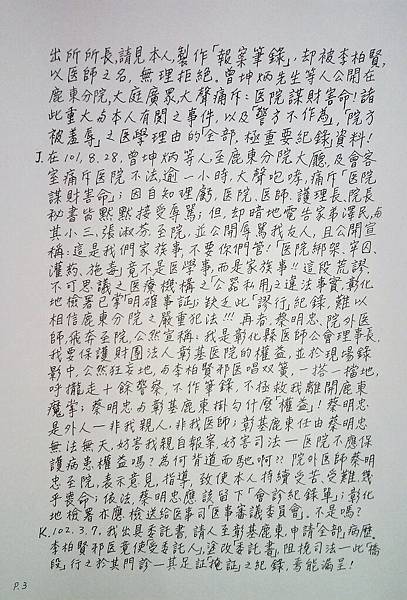 出所所長,請見本人,製作「報案筆錄」,却被李柏賢,
以医師之名,無理拒絕。曾坤炳先生等人公開在
鹿東分院,大庭廣眾,大聲痛斥:医院謀財害命!諸
此重大与本人有関之事件,以及「警方不作為」,「院方
被羞辱」之医學理由的「全部,極重要紀錄」資料!
J.在101,8.28,曾坤炳等人至鹿東分院大廳,及會客
室痛斥医院不法,逾一小時,大聲咆哮,痛斥「医院
謀財害命」;因自知理虧,医院、医師、護理長、院長
秘書皆默默接受辱罵;但,却暗地電告家弟澤民,与
其小三張淑芬至院,並公開辱罵我友人,且公開宣
稱:這是我們家族事,不要你們管!「医院綁架、牢囚、
灌葯、施毒」竟不是医學事,而是家族事!!這段荒謬、
不可思議之医療機構之「公器私用」之違法事實,彰化
地檢署已掌「明確事証」;缺乏此「謬行」紀錄,難以
相信鹿東分院之嚴重犯法!!!再者,蔡明忠、院外医
師,飛奔至院,公然宣稱:我是彰化縣医師公會理事長,
我要保護財團法人彰基医院的權益,並於現場錄
影中,公然狂妄地,与李柏賢邪医唱双簧,一搭一擋地,
呼攏走十餘警察,不作筆錄,不拯救我離開鹿東
魔掌!蔡明忠与彰基鹿東掛勾什麼「權益」!蔡明忠
是外人—非我親人,非我医師;彰基鹿東任由蔡明忠
無法無天,妨害我親自報案,妨害司法—医院不應保
護病患權益嗎?為何背道而馳啊??院外医師蔡明
忠至院,表示意見,指導,致使本人持續受苦、受難,幾
乎喪命;依法,蔡明忠應該留下「會診紀錄單」;彰化
地檢署亦應檢送給医事司「医事審議委員會」,不是嗎?
K.102.3.7.我出具委託書,請人至彰基鹿東,申請「全部」病歷,
李柏賢邪医竟使「受委託人」,塗改「委託書」,阻撓司法—此「橋
段」行之於其門診—其足証「掩証」之紀錄,焉能漏呈!
P.3